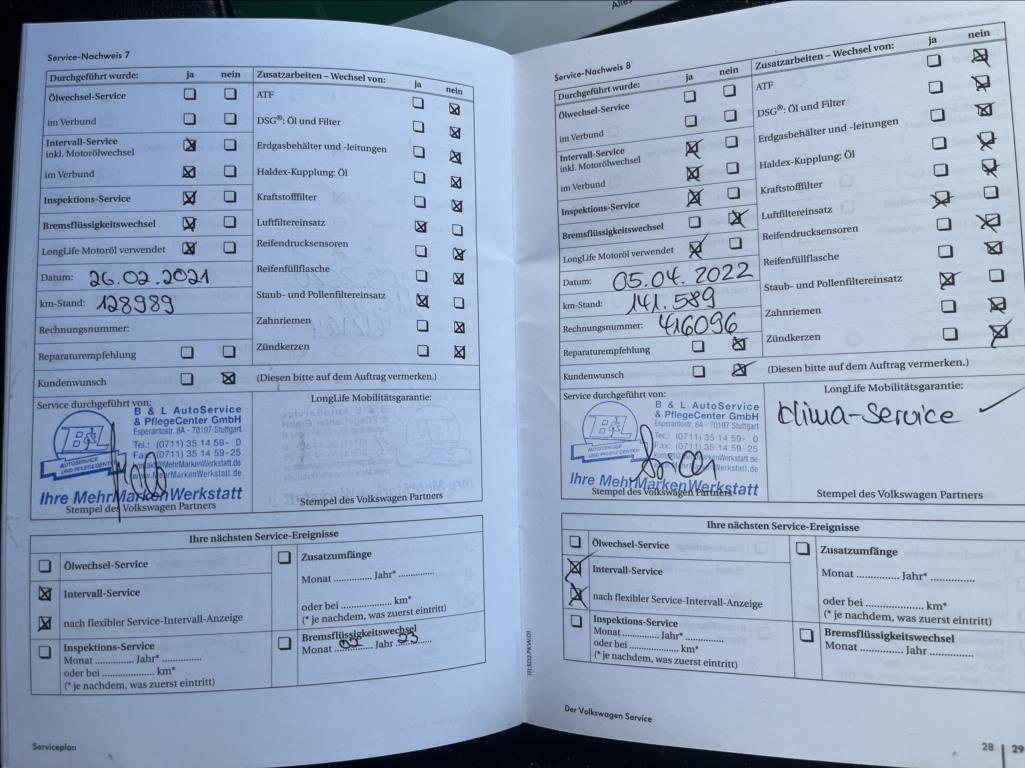 Alles
Service-Nachweis 7
Durchgeführt wurde: ja nein
Ölwechsel-Service
im Verbund
Intervall-Service
inkl. Motorölwechsel
im Verbund
Inspektions-Service
Bremsflüssigkeitswechsel
LongLife Motoröl verwendet
Datum: 26.02.2021
km-Stand: 128989
Rechnungsnummer:
Reparaturempfehlung
Kundenwunsch
Zusatzarbeiten – Wechsel von: ja nein
ATF
DSG®: Öl und Filter
Erdgasbehälter und -leitungen
Haldex-Kupplung: Öl
Kraftstofffilter
Luftfiltereinsatz
Reifendrucksensoren
Reifenfüllflasche
Staub- und Pollenfiltereinsatz
Zahnriemen
Zündkerzen
(Diesen bitte auf dem Auftrag vermerken.)
Service durchgeführt von:
B & L AutoService
& PflegeCenter GmbH
Esperantostr. 8A - 70197 Stuttgart
Tel.: (0711) 35 14 59- 0
Fax: (0711) 35 14 59-25
kontakt@MehrMarkenWerkstatt.de
www.MehrMarkenWerkstatt.de
B&L
AUTOSERVICE
UND PFLEGECENTER
Ihre MehrMarkenWerkstatt
Stempel des Volkswagen Partners
LongLife Mobilitätsgarantie:
Stempel des Volkswagen Partners
Ihre nächsten Service-Ereignisse
Ölwechsel-Service
Intervall-Service
nach flexibler Service-Intervall-Anzeige
Inspektions-Service
Monat .............. Jahr* ..............
oder bei ...................... km*
(* je nachdem, was zuerst eintritt)
Zusatzumfänge
Monat .............. Jahr* ..............
oder bei ...................... km*
(* je nachdem, was zuerst eintritt)
Bremsflüssigkeitswechsel
Monat 02 Jahr 23
Serviceplan
Service-Nachweis 8
Durchgeführt wurde: ja nein
Ölwechsel-Service
im Verbund
Intervall-Service
inkl. Motorölwechsel
im Verbund
Inspektions-Service
Bremsflüssigkeitswechsel
LongLife Motoröl verwendet
Datum: 05.04.2022
km-Stand: 141.589
Rechnungsnummer: 416096
Reparaturempfehlung
Kundenwunsch
Zusatzarbeiten – Wechsel von: ja nein
ATF
DSG®: Öl und Filter
Erdgasbehälter und -leitungen
Haldex-Kupplung: Öl
Kraftstofffilter
Luftfiltereinsatz
Reifendrucksensoren
Reifenfüllflasche
Staub- und Pollenfiltereinsatz
Zahnriemen
Zündkerzen
(Diesen bitte auf dem Auftrag vermerken.)
Service durchgeführt von:
B & L AutoService
& PflegeCenter GmbH
Esperantostr. 8A - 70197 Stuttgart
Tel.: (0711) 35 14 59- 0
Fax: (0711) 35 14 59-25
kontakt@MehrMarkenWerkstatt.de
www.MehrMarkenWerkstatt.de
B&L
AUTOSERVICE
UND PFLEGECENTER
Ihre MehrMarkenWerkstatt
Stempel des Volkswagen Partners
LongLife Mobilitätsgarantie:
Klima-Service
Stempel des Volkswagen Partners
Ihre nächsten Service-Ereignisse
Ölwechsel-Service
Intervall-Service
nach flexibler Service-Intervall-Anzeige
Inspektions-Service
Monat .............. Jahr* ..............
oder bei ...................... km*
(* je nachdem, was zuerst eintritt)
Zusatzumfänge
Monat .............. Jahr* ..............
oder bei ...................... km*
(* je nachdem, was zuerst eintritt)
Bremsflüssigkeitswechsel
Monat .............. Jahr ..............
Der Volkswagen Service
28 | 29